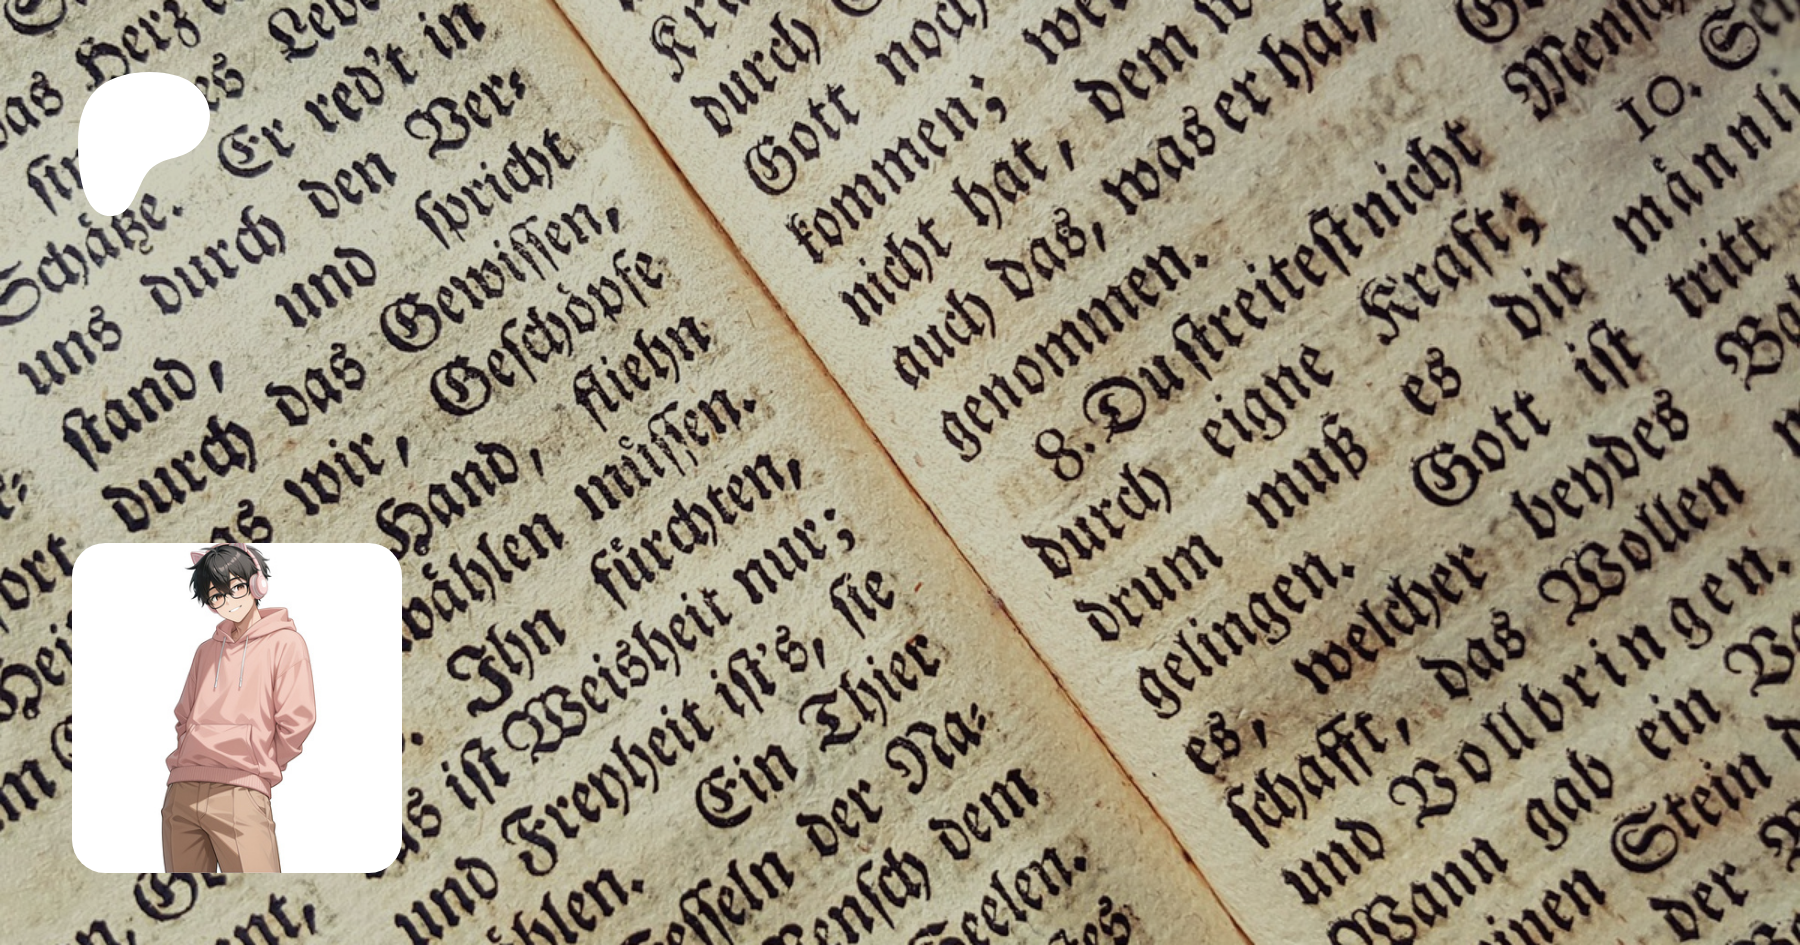 das Herz
Er red't in
uns durch den Ver⸗
stand, und spricht
durch das Gewissen,
wir, Geschöpfe
Hand, fliehn
wåhlen můssen.
Ihn fůrchten,
ist Weisheit nur;
und Freyheit ist's, sie
Ein Thier
der Na⸗
Mensch dem
Seelen.
durch
Gott noch
kommen;
nicht hat, dem
auch das, was er hat,
genommen.
8. Du streitest nicht
durch eigne Kraft;
drum muß es dir
gelingen. Gott ist
es, welcher beydes
schafft, das Wollen
und Vollbringen.
Wann gab ein
Stein
der
10.
månnli
tritt